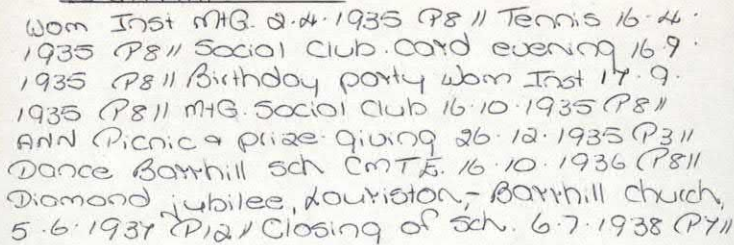 Wom Inst MtG. 2.4.1935 (P8 // Tennis 16.4.
1935 (P8 // Social Club. Card evening 16.9.
1935 (P8 // Birthday party Wom Inst 17.9.
1935 (P8 // MtG. Social Club 16.10.1935 (P8 //
ANN Picnic & prize giving 26.12.1935 (P3 //
Dance Barrhill Sch CMTE. 16.10.1936 (P8 //
Diamond jubilee, Lauriston, - Barrhill church,
5.6.1937 (P12 // Closing of Sch. 6.7.1938 (P7 //